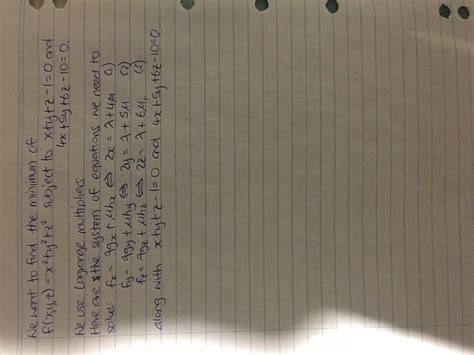 We want to find the minimum of
f(x,y,z) = x²+y²+z² subject to x+y+z-1=0 and
4x+5y+6z-10=0.
We use Lagrange multipliers.
Here are the system of equations we need to
solve: fx = λgx + μhx ⇔ 2x = λ+4μ (1)
fy = λgy + μhy ⇔ 2y = λ+5μ (2)
fz = λgz + μhz ⇔ 2z = λ+6μ, (3)
along with x+y+z-1=0 and 4x+5y+6z-10=0